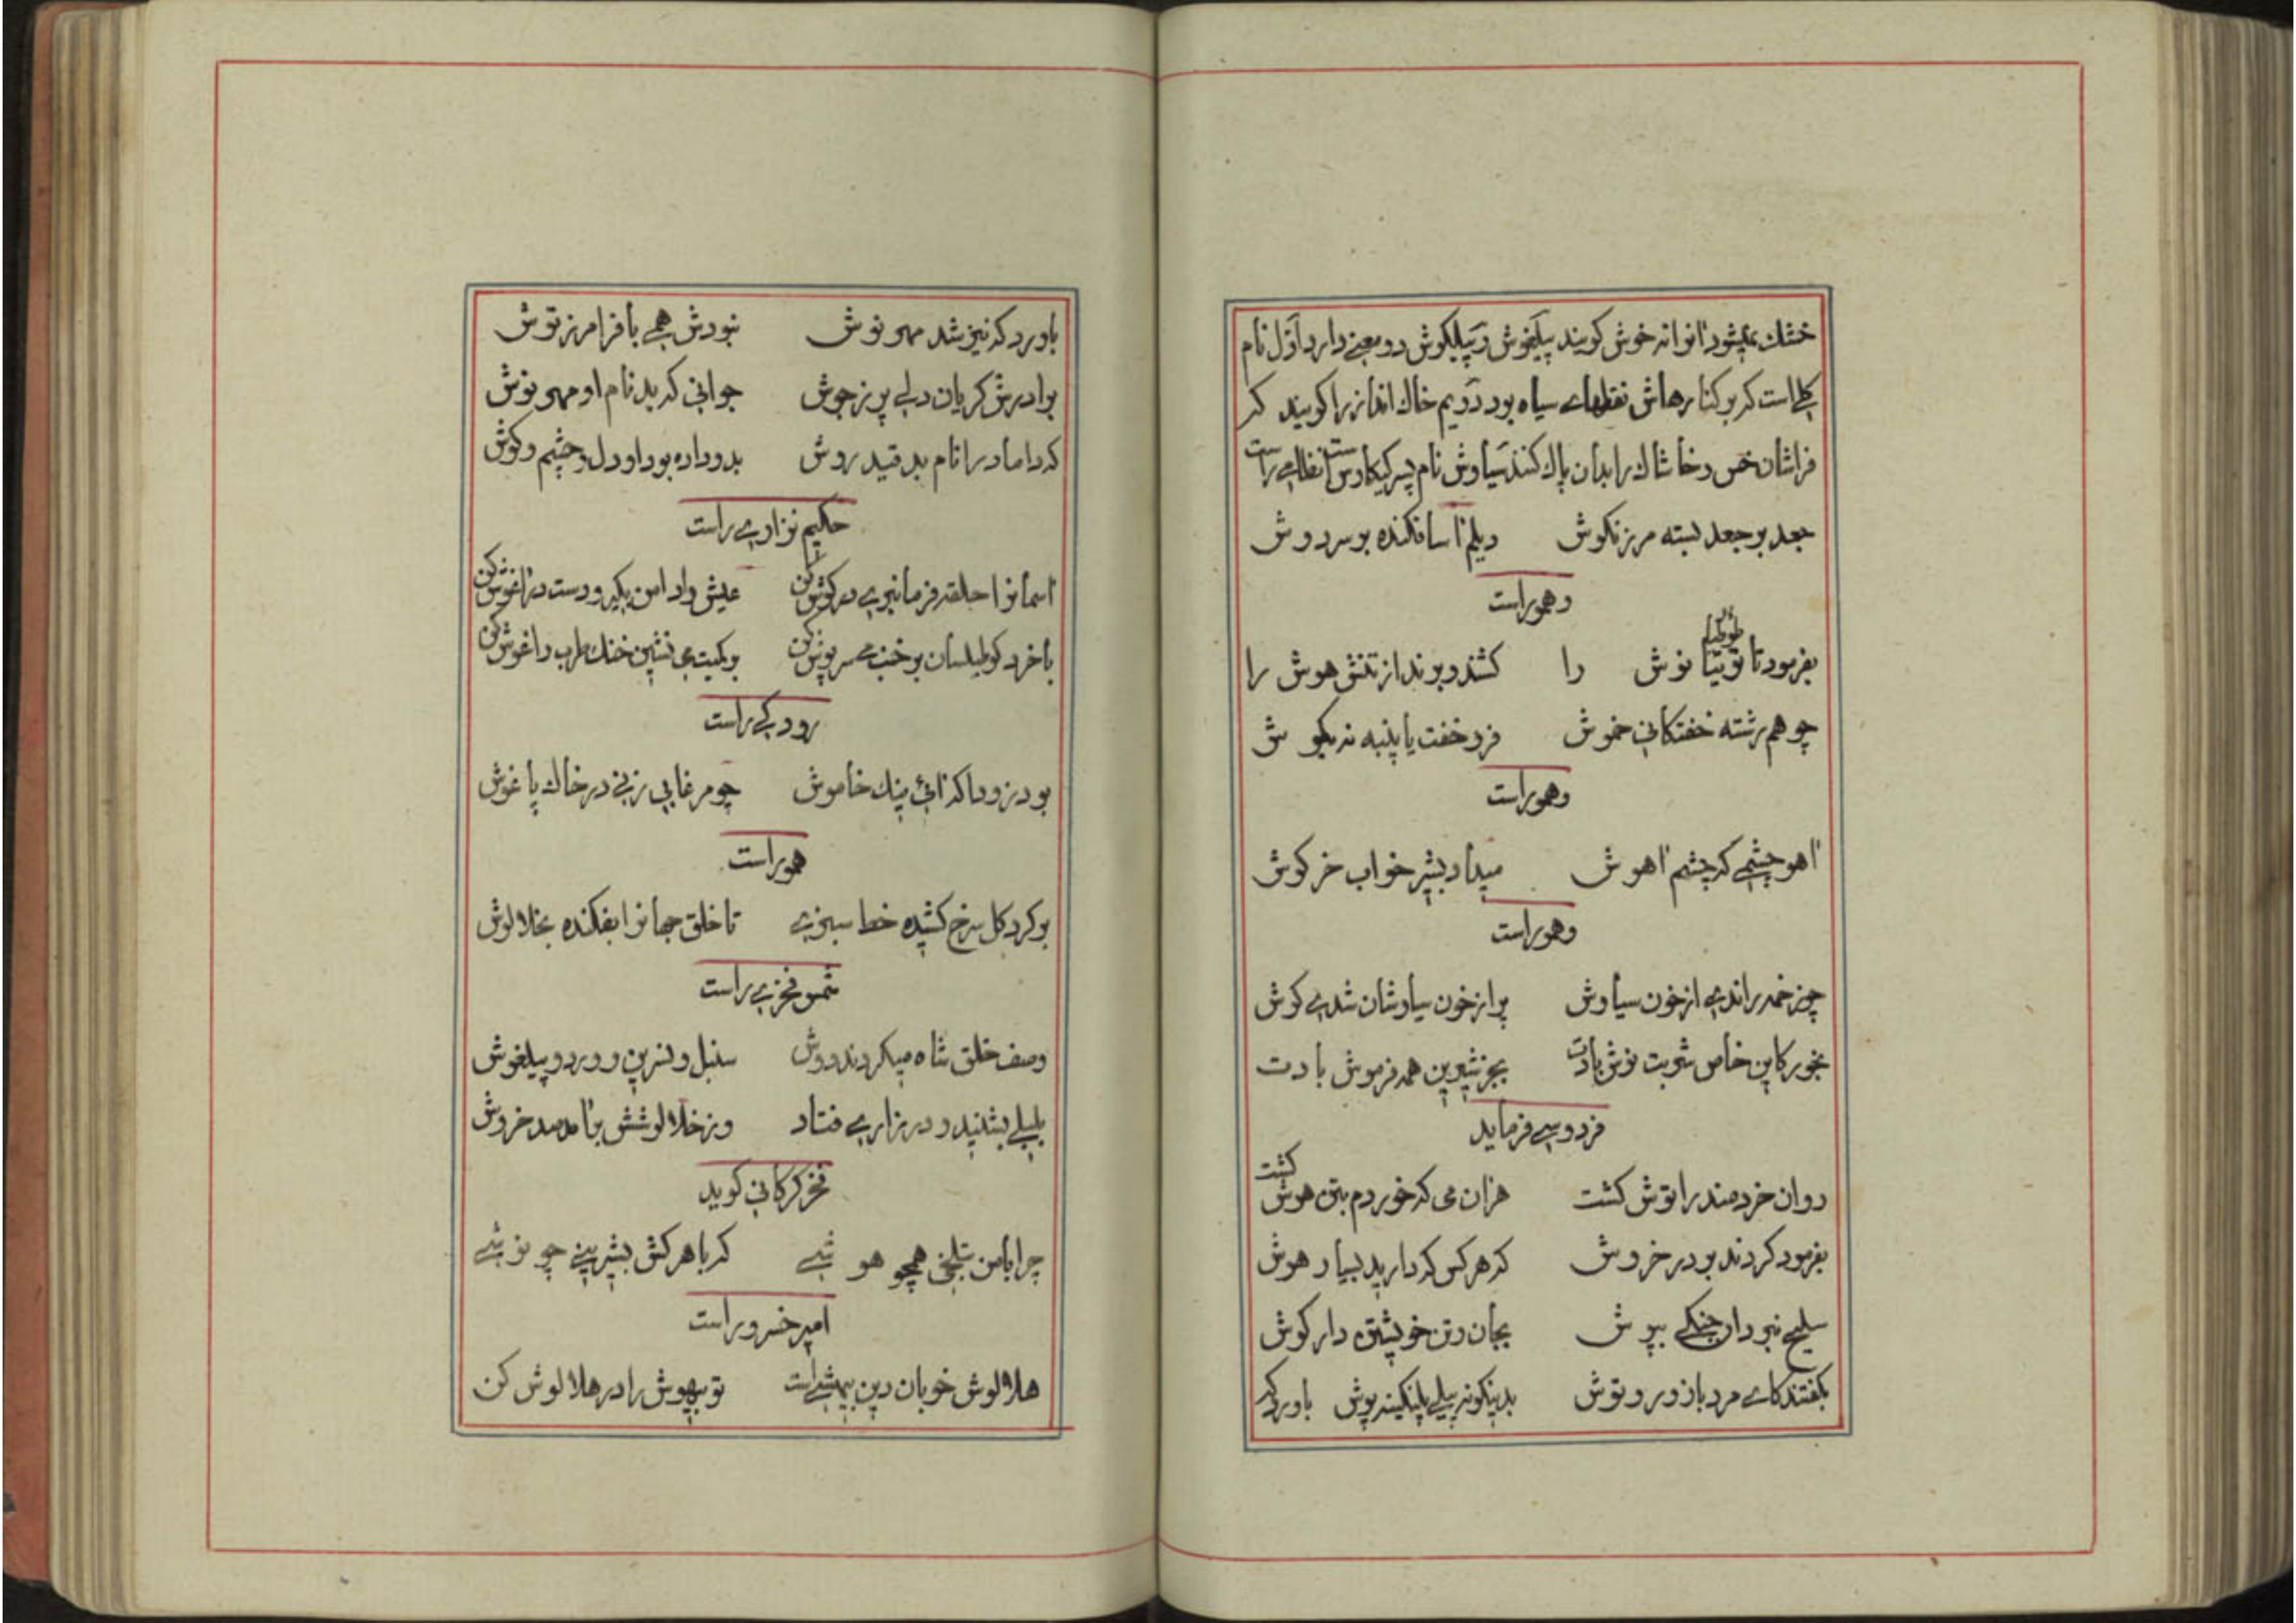 خشك میشود آنرا نه خوش کویند پیلغوش و پیلکوش دو معنے دارد اوّل نام
کلے است که بر کنارهاش نقطهاے سیاه بود دویم خاك انداز را کویند که
فراشان خس و خاشاك را بدان پاك کنند سیاوش نام پسر کیکاوس است نظامے راست
جعد بر جعد بسته مرزنکوش دیلم آسا فکنده بر سر دوش
وهموراست
بفرمود تا توتیا نوش را کشند و برند از تنش هوش را
چو هم رشته خفتکانے خموش فرو خفت یا پنبه نه بکوش
وهموراست
آهو چشمے که چشم آهوش میداد بشیر خواب خرکوش
وهموراست
چو زخمه راندے از خون سیاوش پر از خون سیاوشان شدے کوش
بخور کاین خاص شربت نوش بادت بجز شیرین همه فرموش بادت
فردوسے فرماید
روان خردمند را توش کشت هران می که خوردم بتن هوش کشت
بفرمود کردند بر در خروش که هر کس که دارید بسیار هوش
سلیح نبرد ان جنکے بپوش بجان و تن خویشتن دار کوش
بکفتند کاے مرد با زور و توش بدینکونه پیلے پلنکینه پوش
باورد که
باورد که نیز شد مهر نوش نبودش همے با فرامرز توش
برادرش کریان دلے پر ز جوش جوانی که بد نام او مهر نوش
که داماد را نام بد قیدروش بدو داده بود او دل و چشم و کوش
حکیم نزارے راست
آسمانرا حلقه فرمانبرے در کوش کن عیش را دامن بکیر و دست در آغوش کن
با خرد کو طیلسان بر خنب مے سرپوش کن بر کمیت مے نشین خنك طرب را غوش کن
رودکے راست
بود زودا که آئی نیك خاموش چو مرغابی زنے در خاك پاغوش
هموراست
بر کرد کل سرخ کشیده خط سبزے تا خلق جهانرا بفکنده بخلالوش
شمس فخرے راست
وصف خلق شاه میکردند دوش سنبل و نسرین و ورد و پیلغوش
بلبلے بشنید و در زارے فتاد وز خلالوشش برآمد صد خروش
فخر کرکانے کوید
چرا با من بتلخی همچو هوشے که با هر کس بشیرینے چو نوشے
امیر خسرو راست
هلالوش خوبان دین بیهشے است تو بیهوش را در هلالوش کن